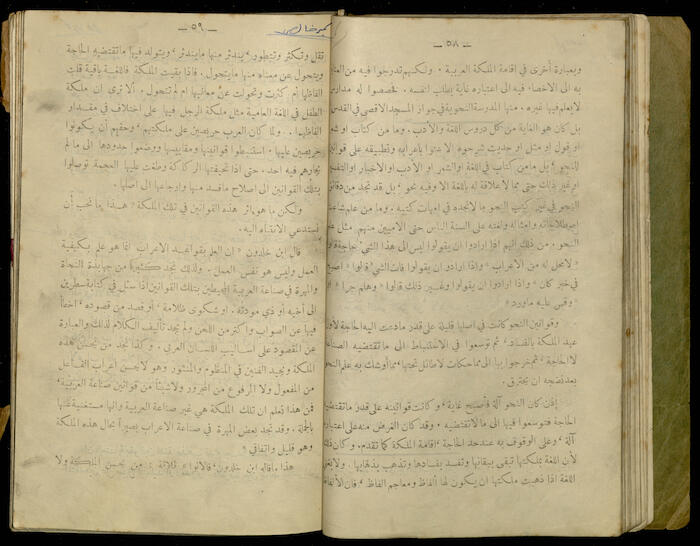 — ٥٨ —
وبعبارة أخرى في إقامة الملكة العربية . ولكنهم تدرجوا فيه من
به الى الاخصاء فيه الى اعتباره غاية يطلب لنفسه . فخصصوا له مدارس
لا يعلم فيها غيره . منها المدرسة النحوية في جواز المسجد الاقصى في القدس
بل كان هو الغاية من كل دروس اللغة والأدب . وما من كتاب او شعر
او قول او مثل او حديث شرحوه الا عنوا باعرابه وتطبيقه على قوانين
النحو ، بل ما من كتاب في اللغة والشعر او الأدب او الاخبار والتفسير
او غير ذلك حتى مما لا علاقة له باللغة الا وفيه نحو ، بل قد تجد من دقائق
النحو في غير كتب النحو ما لا تجده في امهات كتبه . وما من علم شاعت
اصطلاحاته وامثاله ولغته على السنة الناس حتى الاميين منهم مثل علم
النحو . من ذلك انهم اذا ارادوا ان يقولوا ليس الى هذا الشيء حاجة قالوا
« لا محل له من الاعراب » واذا ارادو ان يقولوا فات الشيء قالوا « اصبح
في خبر كان » واذا ارادوا ان يقولوا وغير ذلك قالوا « وهلم جرا » او
« وقس عليه ما ورد »
وقوانين النحو كانت في اصلها قليلة على قدر ما دعت اليه الحاجة لأول
عهد الملكة بالفساد ، ثم توسعوا في الاحتياط الى ما تقتضيه الصناعة
لا الحاجة ، ثم خرجوا بها الى مماحكات لا طائل تحتها ، مما أوشك به علم النحو
بعد نضجه ان يحترق .
إذن كان النحو آلة فأصبح غاية ، وكانت قوانينه على قدر ما تقتضيه
الحاجة فتوسعوا فيها الى ما لا تقتضيه . وقد كان الغرض منه على اعتباره
آلة ، وعلى الوقوف به عند حد الحاجة ، إقامة الملكة كما تقدم . وكان ذلك
لأن اللغة بملكتها تبقى ببقائها وتفسد بفسادها وتذهب بذهابها . ولا يغني
اللغة اذا ذهبت ملكتها ان يكون لها ألفاظ ومعاجم الفاظ ، فان الألفاظ
— ٥٩ —
تقل وتكثر وتتطور ، يندثر منها ما يندثر ، ويتولد فيها ما تقتضيه الحاجة
ويتحول عن معناه منها ما يتحول . فاذا بقيت الملكة فاللغة باقية قلت
الفاظها ام كثرت وتحولت عن معانيها ام لم تتحول . ألا ترى ان ملكة
الطفل في اللغة العامية مثل ملكة الرجل فيها على اختلاف في مقدار
الفاظهما . ولما كان العرب حريصين على ملكتهم ، وحقهم أن يكونوا
حريصين عليها . استنبطوا قوانينها ومقاييسها ووضعوا حدودها الى ما لم
يجارهم فيه احد . حتى اذا تحيفتها الركاكة وطغت عليها العجمة توصلوا
بتلك القوانين الى اصلاح ما فسد منها وارجاعها الى اصلها .
ولكن ما هو اثر هذه القوانين في تلك الملكة ؟ هذا ما نحب أن
نستدعي الانتباه اليه .
قال ابن خلدون « ان العلم بقوانين الاعراب انما هو علم بكيفية
العمل وليس هو نفس العمل . ولذلك نجد كثيرا من جهابذة النحاة
والمهرة في صناعة العربية المحيطين بتلك القوانين اذا سئل في كتابة سطرين
الى أخيه أو ذي مودته . او شكوى ظلامة ، أو قصد من قصوده ، اخطأ
فيها عن الصواب واكثر من اللحن ولم يجد تأليف الكلام لذلك والعبارة
عن المقصود على اساليب اللسان العربي . وكذا نجد من يحسن هذه
الملكة ويجيد الفنين في المنظوم والمنثور وهو لا يحسن اعراب الفاعل
من المفعول ولا المرفوع من المجرور ولا شيئا من قوانين صناعة العربية ،
فمن هذا تعلم ان تلك الملكة هي غير صناعة العربية وانها مستغنية عنها
بالجملة . وقد تجد بعض المهرة في صناعة الاعراب بصيرا بحال هذه الملكة
وهو قليل واتفاقي »
هذا ما قاله ابن خلدون ، فالانواع ثلاثة : من يحسن الملكة ولا